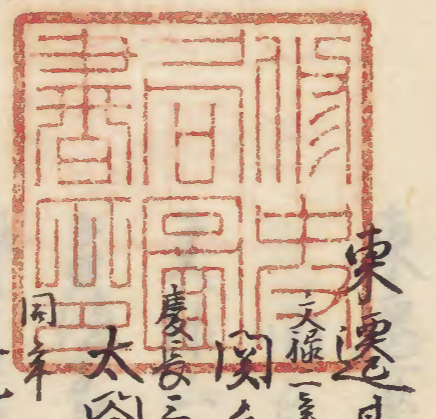 修史
局圖
書印
東遷
文禄
関
慶長
太閤
同年